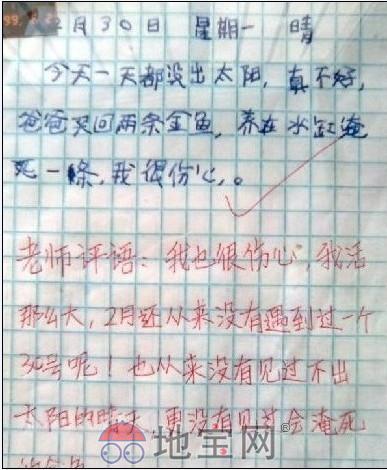 99.
2月30日 星期一 晴
今天一天都没出太阳,真不好,
爸爸买回两条金鱼,养在水缸淹
死一條,我很伤心,。
老师评语:我也很伤心,我活
那么大,2月还从来没有遇到过一个
30号呢!也从来没有见过不出
太阳的晴天,更没有见过会淹死
的金鱼
地宝网®